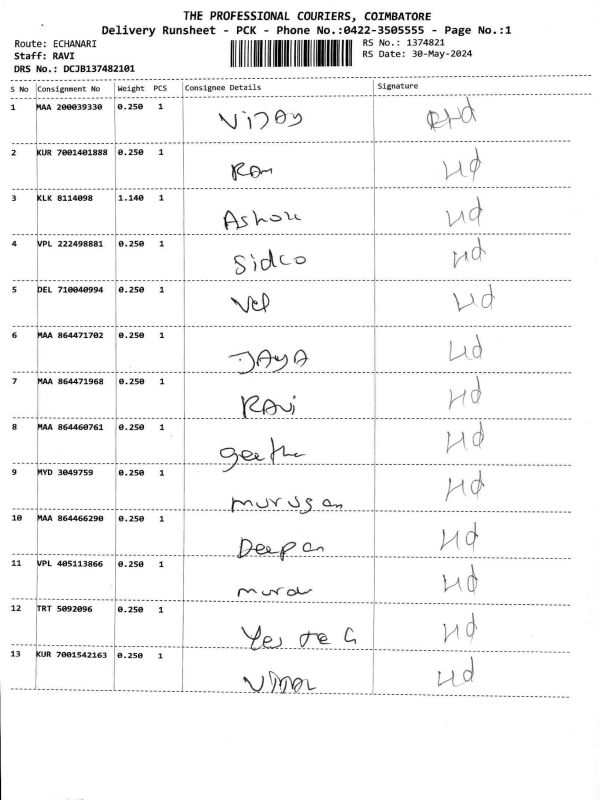 THE PROFESSIONAL COURIERS, COIMBATORE
Delivery Runsheet - PCK - Phone No.:0422-3505555 - Page No.:1
Route: ECHANARI RS No.: 1374821
Staff: RAVI RS Date: 30-May-2024
DRS No.: DCJB137482101
S No Consignment No Weight PCS Consignee Details Signature
1 MAA 200039330 0.250 1 VIJAY
2 KUR 7001401888 0.250 1 Ram
3 KLK 8114098 1.140 1 Ashok
4 VPL 222498881 0.250 1 Sidco
5 DEL 710040994 0.250 1 Vel
6 MAA 864471702 0.250 1 JAYA
7 MAA 864471968 0.250 1 RAVi
8 MAA 864460761 0.250 1 geetha
9 MYD 3049759 0.250 1 murugan
10 MAA 864466290 0.250 1 Deepan
11 VPL 405113866 0.250 1
12 TRT 5092096 0.250 1
13 KUR 7001542163 0.250 1